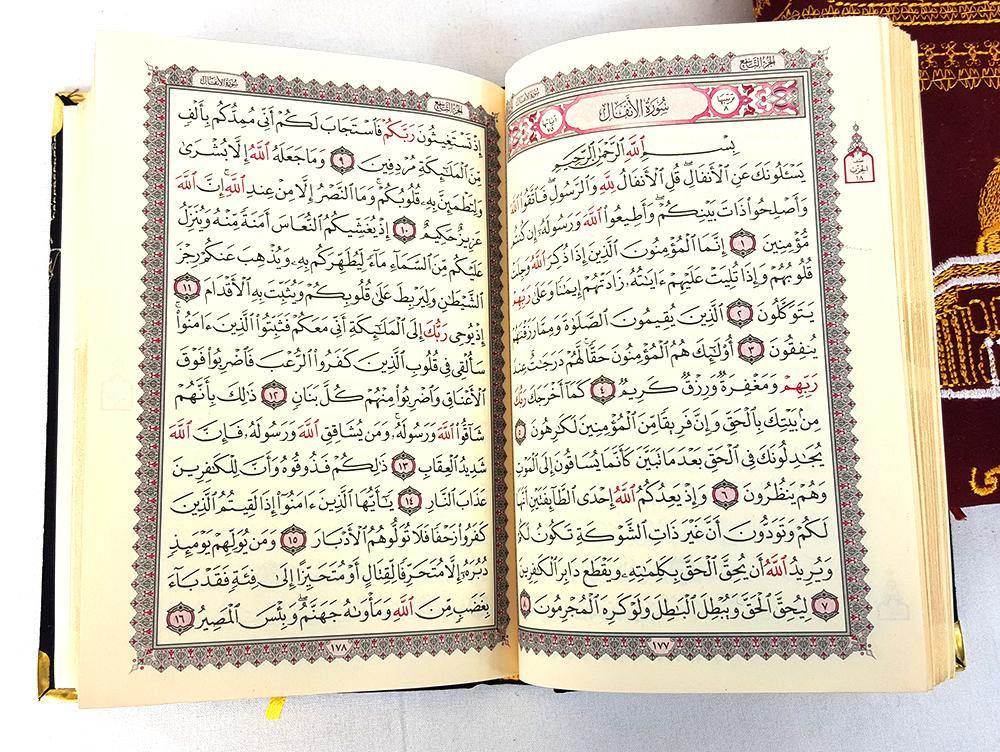 الجزء التاسع
سورة الأنفال
سُورَةُ الأَنفَالِ
بِسْمِ ٱللَّهِ ٱلرَّحْمَٰنِ ٱلرَّحِيمِ
يَسْـَٔلُونَكَ عَنِ ٱلْأَنفَالِ ۖ قُلِ ٱلْأَنفَالُ لِلَّهِ وَٱلرَّسُولِ ۖ فَٱتَّقُوا۟ ٱللَّهَ
وَأَصْلِحُوا۟ ذَاتَ بَيْنِكُمْ ۖ وَأَطِيعُوا۟ ٱللَّهَ وَرَسُولَهُۥٓ إِن كُنتُم
مُّؤْمِنِينَ ١ إِنَّمَا ٱلْمُؤْمِنُونَ ٱلَّذِينَ إِذَا ذُكِرَ ٱللَّهُ وَجِلَتْ
قُلُوبُهُمْ وَإِذَا تُلِيَتْ عَلَيْهِمْ ءَايَٰتُهُۥ زَادَتْهُمْ إِيمَٰنًا وَعَلَىٰ رَبِّهِمْ
يَتَوَكَّلُونَ ٢ ٱلَّذِينَ يُقِيمُونَ ٱلصَّلَوٰةَ وَمِمَّا رَزَقْنَٰهُمْ
يُنفِقُونَ ٣ أُو۟لَٰٓئِكَ هُمُ ٱلْمُؤْمِنُونَ حَقًّا ۚ لَّهُمْ دَرَجَٰتٌ عِندَ
رَبِّهِمْ وَمَغْفِرَةٌ وَرِزْقٌ كَرِيمٌ ٤ كَمَآ أَخْرَجَكَ رَبُّكَ
مِنۢ بَيْتِكَ بِٱلْحَقِّ وَإِنَّ فَرِيقًا مِّنَ ٱلْمُؤْمِنِينَ لَكَٰرِهُونَ
يُجَٰدِلُونَكَ فِى ٱلْحَقِّ بَعْدَ مَا تَبَيَّنَ كَأَنَّمَا يُسَاقُونَ إِلَى ٱلْمَوْتِ
وَهُمْ يَنظُرُونَ ٦ وَإِذْ يَعِدُكُمُ ٱللَّهُ إِحْدَى ٱلطَّآئِفَتَيْنِ أَنَّهَا
لَكُمْ وَتَوَدُّونَ أَنَّ غَيْرَ ذَاتِ ٱلشَّوْكَةِ تَكُونُ لَكُمْ
وَيُرِيدُ ٱللَّهُ أَن يُحِقَّ ٱلْحَقَّ بِكَلِمَٰتِهِۦ وَيَقْطَعَ دَابِرَ ٱلْكَٰفِرِينَ
٧ لِيُحِقَّ ٱلْحَقَّ وَيُبْطِلَ ٱلْبَٰطِلَ وَلَوْ كَرِهَ ٱلْمُجْرِمُونَ ٨
١٧٧
الجزء التاسع
سورة الأنفال
إِذْ تَسْتَغِيثُونَ رَبَّكُمْ فَٱسْتَجَابَ لَكُمْ أَنِّى مُمِدُّكُم بِأَلْفٍ
مِّنَ ٱلْمَلَٰٓئِكَةِ مُرْدِفِينَ ٩ وَمَا جَعَلَهُ ٱللَّهُ إِلَّا بُشْرَىٰ
وَلِتَطْمَئِنَّ بِهِۦ قُلُوبُكُمْ ۚ وَمَا ٱلنَّصْرُ إِلَّا مِنْ عِندِ ٱللَّهِ ۚ إِنَّ ٱللَّهَ
عَزِيزٌ حَكِيمٌ ١٠ إِذْ يُغَشِّيكُمُ ٱلنُّعَاسَ أَمَنَةً مِّنْهُ وَيُنَزِّلُ
عَلَيْكُم مِّنَ ٱلسَّمَآءِ مَآءً لِّيُطَهِّرَكُم بِهِۦ وَيُذْهِبَ عَنكُمْ رِجْزَ
ٱلشَّيْطَٰنِ وَلِيَرْبِطَ عَلَىٰ قُلُوبِكُمْ وَيُثَبِّتَ بِهِ ٱلْأَقْدَامَ ١١
إِذْ يُوحِى رَبُّكَ إِلَى ٱلْمَلَٰٓئِكَةِ أَنِّى مَعَكُمْ فَثَبِّتُوا۟ ٱلَّذِينَ ءَامَنُوا۟ ۚ
سَأُلْقِى فِى قُلُوبِ ٱلَّذِينَ كَفَرُوا۟ ٱلرُّعْبَ فَٱضْرِبُوا۟ فَوْقَ
ٱلْأَعْنَاقِ وَٱضْرِبُوا۟ مِنْهُمْ كُلَّ بَنَانٍ ١٢ ذَٰلِكَ بِأَنَّهُمْ
شَآقُّوا۟ ٱللَّهَ وَرَسُولَهُۥ ۚ وَمَن يُشَاقِقِ ٱللَّهَ وَرَسُولَهُۥ فَإِنَّ ٱللَّهَ
شَدِيدُ ٱلْعِقَابِ ١٣ ذَٰلِكُمْ فَذُوقُوهُ وَأَنَّ لِلْكَٰفِرِينَ
عَذَابَ ٱلنَّارِ ١٤ يَٰٓأَيُّهَا ٱلَّذِينَ ءَامَنُوٓا۟ إِذَا لَقِيتُمُ ٱلَّذِينَ
كَفَرُوا۟ زَحْفًا فَلَا تُوَلُّوهُمُ ٱلْأَدْبَارَ ١٥ وَمَن يُوَلِّهِمْ يَوْمَئِذٍ
دُبُرَهُۥٓ إِلَّا مُتَحَرِّفًا لِّقِتَالٍ أَوْ مُتَحَيِّزًا إِلَىٰ فِئَةٍ فَقَدْ بَآءَ
بِغَضَبٍ مِّنَ ٱللَّهِ وَمَأْوَىٰهُ جَهَنَّمُ ۖ وَبِئْسَ ٱلْمَصِيرُ ١٦
١٧٨